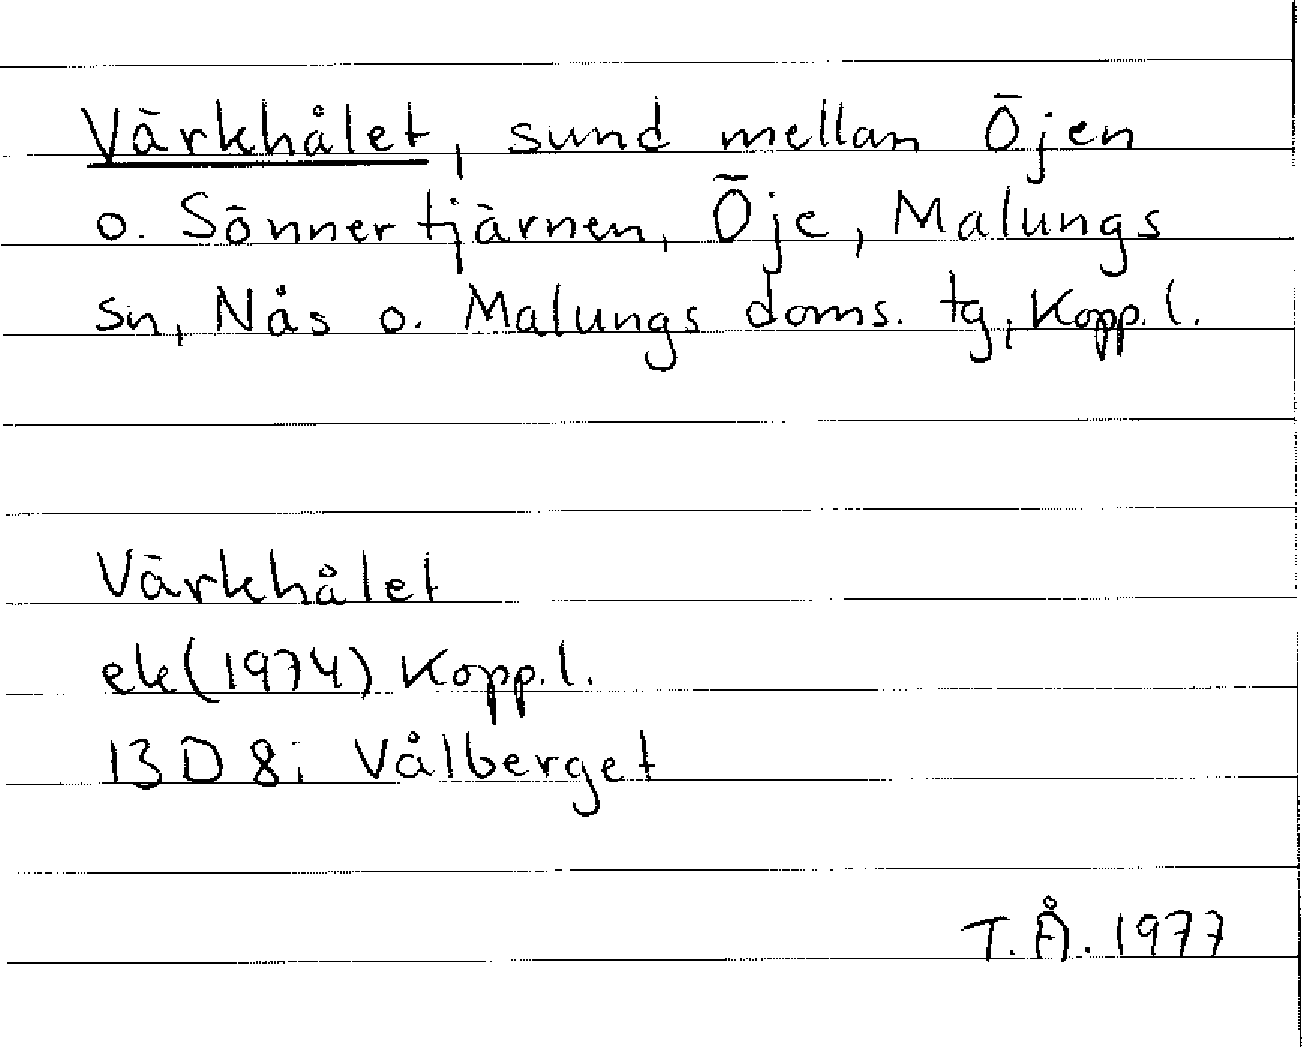 Värkhålet, sund mellan Öjen
o. Sönnertjärnen, Öje, Malungs
sn, Nås o. Malungs doms. tg, Kopp. l.
Värkhålet
ek (1974) Kopp. l.
13 D 8 i Vålberget
T. Å. 1977